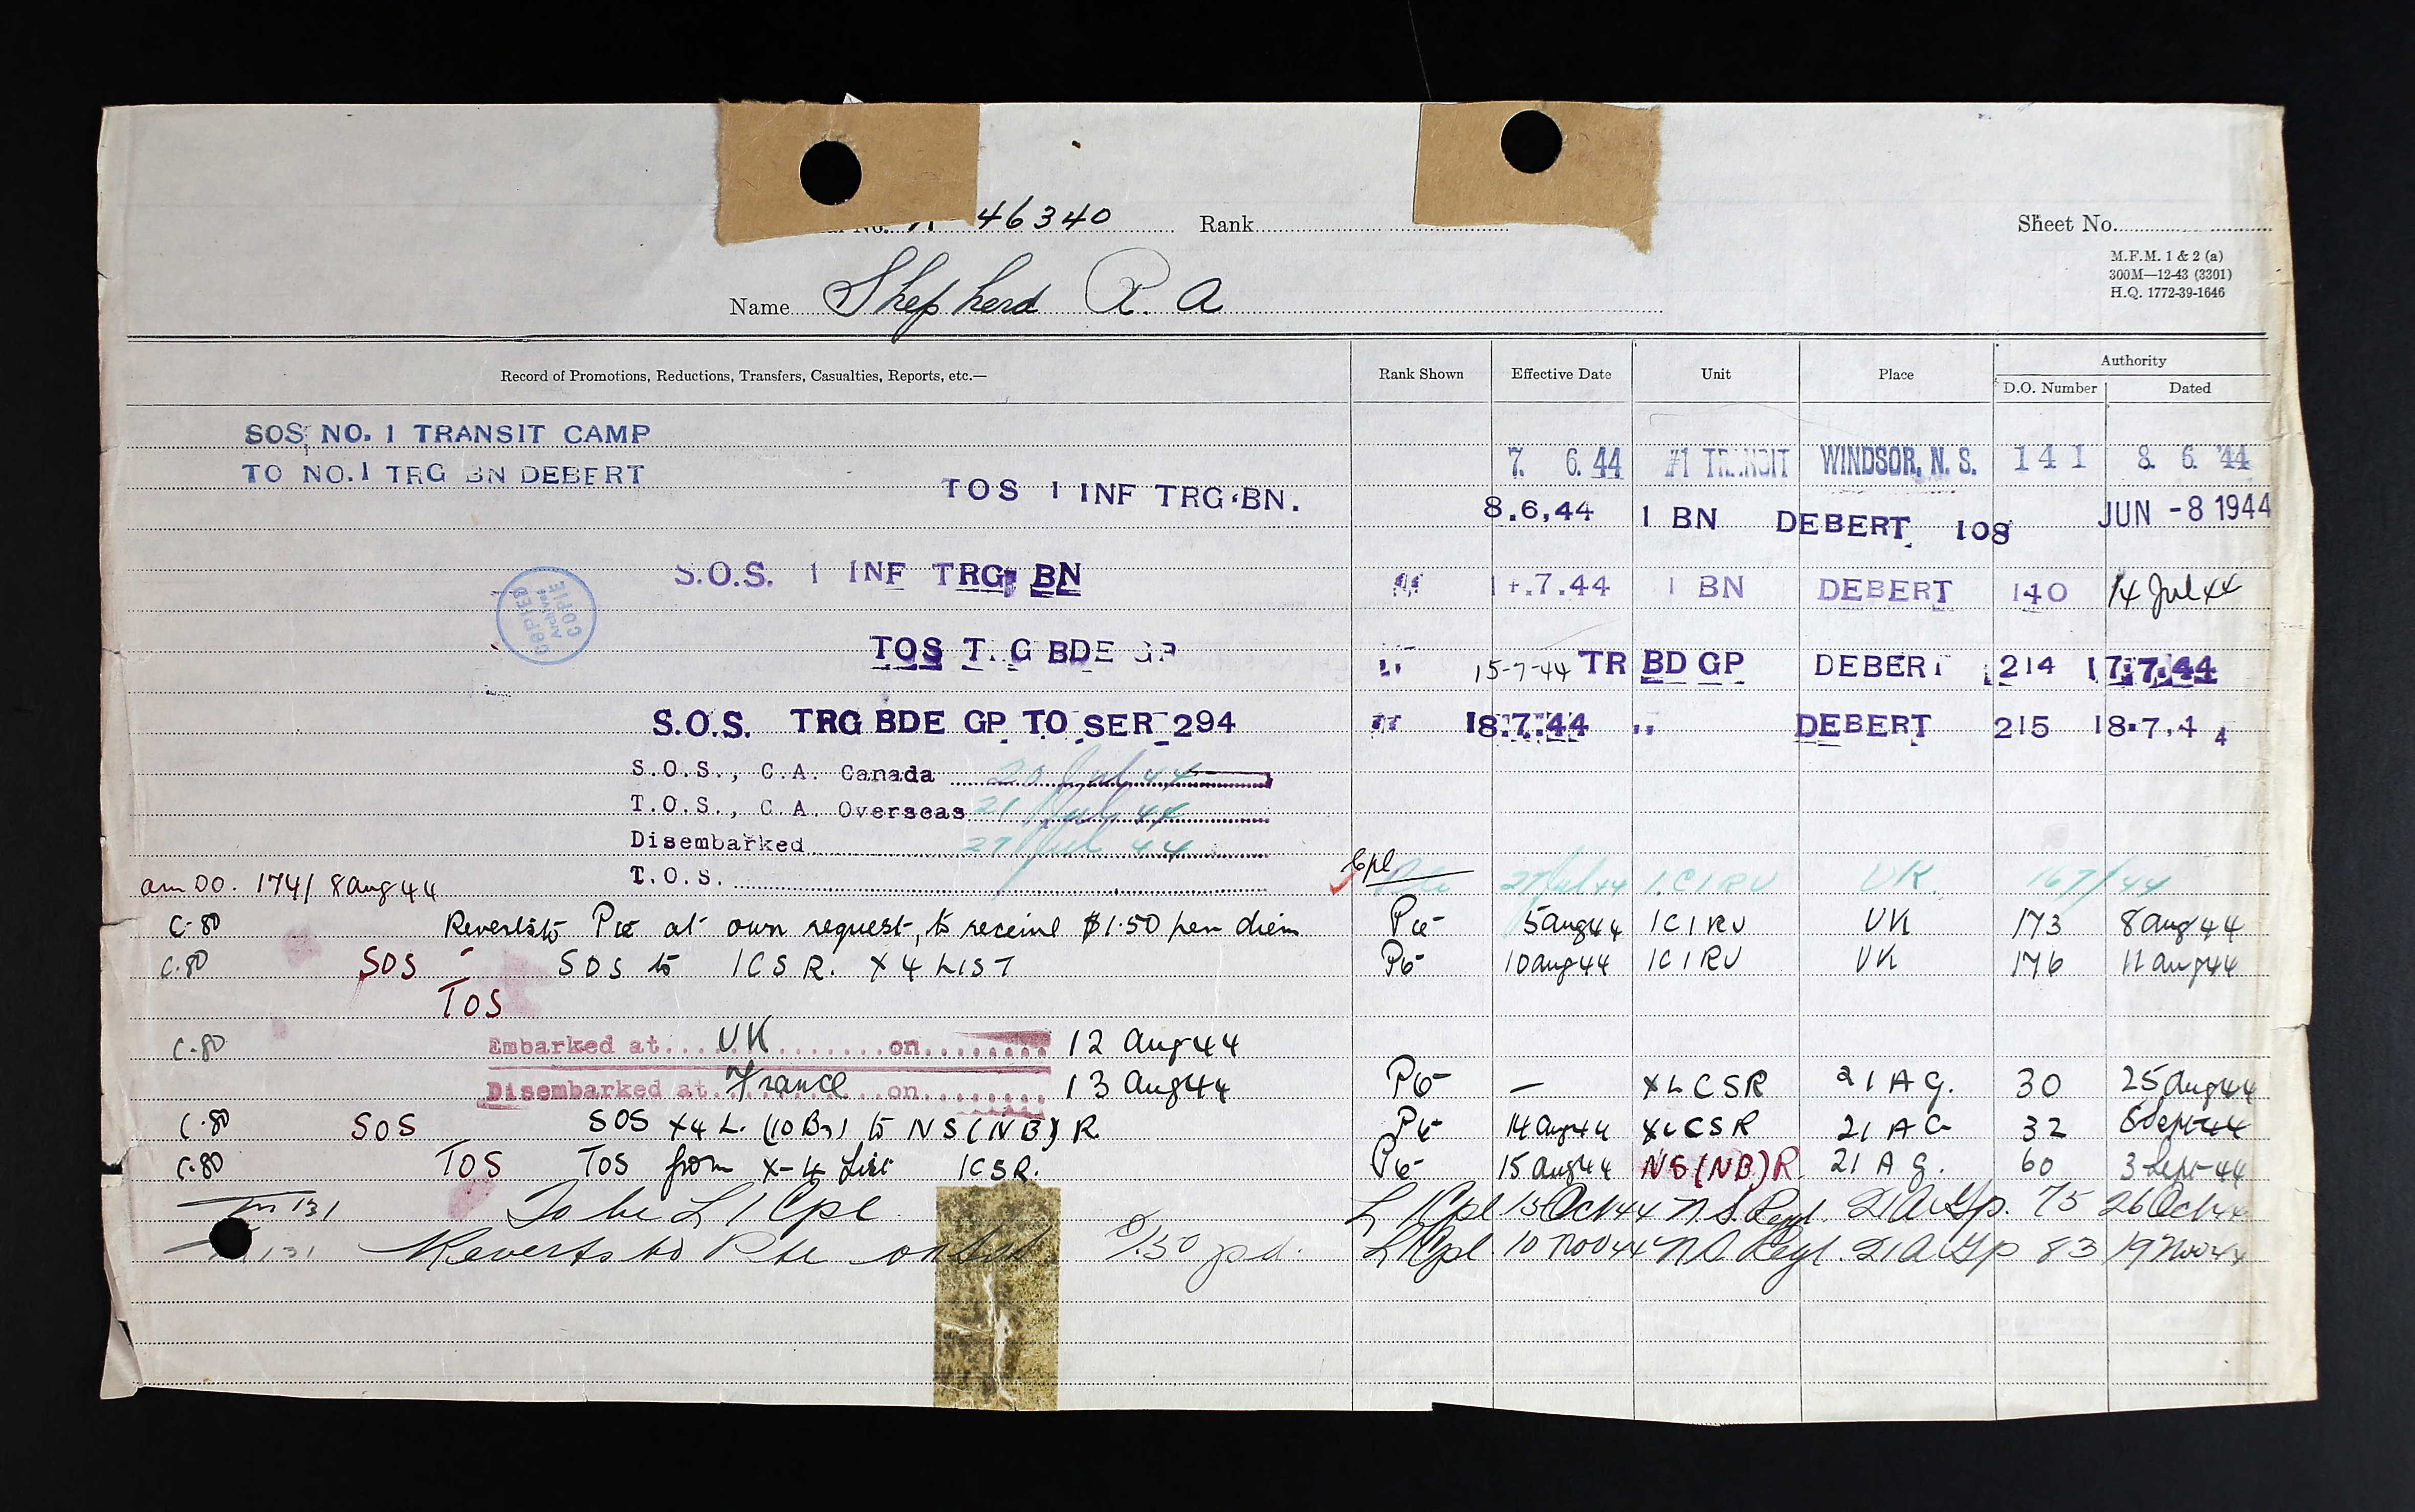 46340 Rank Sheet No.
M.F.M. 1 & 2 (a)
300M—12-43 (3301)
H.Q. 1772-39-1646
Name Shepherd R. A
Record of Promotions, Reductions, Transfers, Casualties, Reports, etc.— Rank Shown Effective Date Unit Place Authority
D.O. Number Dated
SOS NO. 1 TRANSIT CAMP
TO NO.1 TRG BN DEBERT 7. 6. 44 #1 TRANSIT WINDSOR, N. S. 141 8. 6. 44
TOS 1 INF TRG. BN. 8.6,44 1 BN DEBERT 108 JUN -8 1944
COPIED
Archives
COPIE
S.O.S. 1 INF TRG. BN 14.7.44 1 BN DEBERT 140 14 Jul 44
TOS TRG BDE GP 15-7-44 TR BD GP DEBERT 214 17.7.44
S.O.S. TRG BDE GP TO SER 294 " 18.7.44 " DEBERT 215 18.7.44
S.O.S., C.A. Canada 20 Jul 44
T.O.S., C.A. Overseas 21 July 44
Disembarked 27 Jul 44
am DO. 174/ 8 Aug 44 T.O.S. Cpl 27 Jul 44 1.CIRU UK. 167/44
C-80 Reverts to Pte at own request, to receive $1.50 per diem Pte 5 Aug 44 1CIRU UK 173 8 Aug 44
C-80 SOS - SOS to 1CSR. X4 LIST Pte 10 Aug 44 1CIRU UK 176 11 Aug 44
TOS
C-80 Embarked at UK on 12 Aug 44
Disembarked at France on 13 Aug 44 Pte — X4CSR 21 A G. 30 25 Aug 44
C-80 SOS SOS X4 L. (10 Bn) to NS (NB) R Pte 14 Aug 44 X4CSR 21 A G 32 Sept 44
C-80 TOS TOS from X-4 List 1CSR. Pte 15 Aug 44 NS (NB) R. 21 A G. 60 3 Sept 44
131 To be L/Cpl L/Cpl 15 Oct 44 N.S. Regt. 21 A Gp. 75 26 Oct 44
131 Reverts to Pte 1.50 pd. L/Cpl. 10 Nov 44 N S Regt. 21 A Gp 83 19 Nov 44